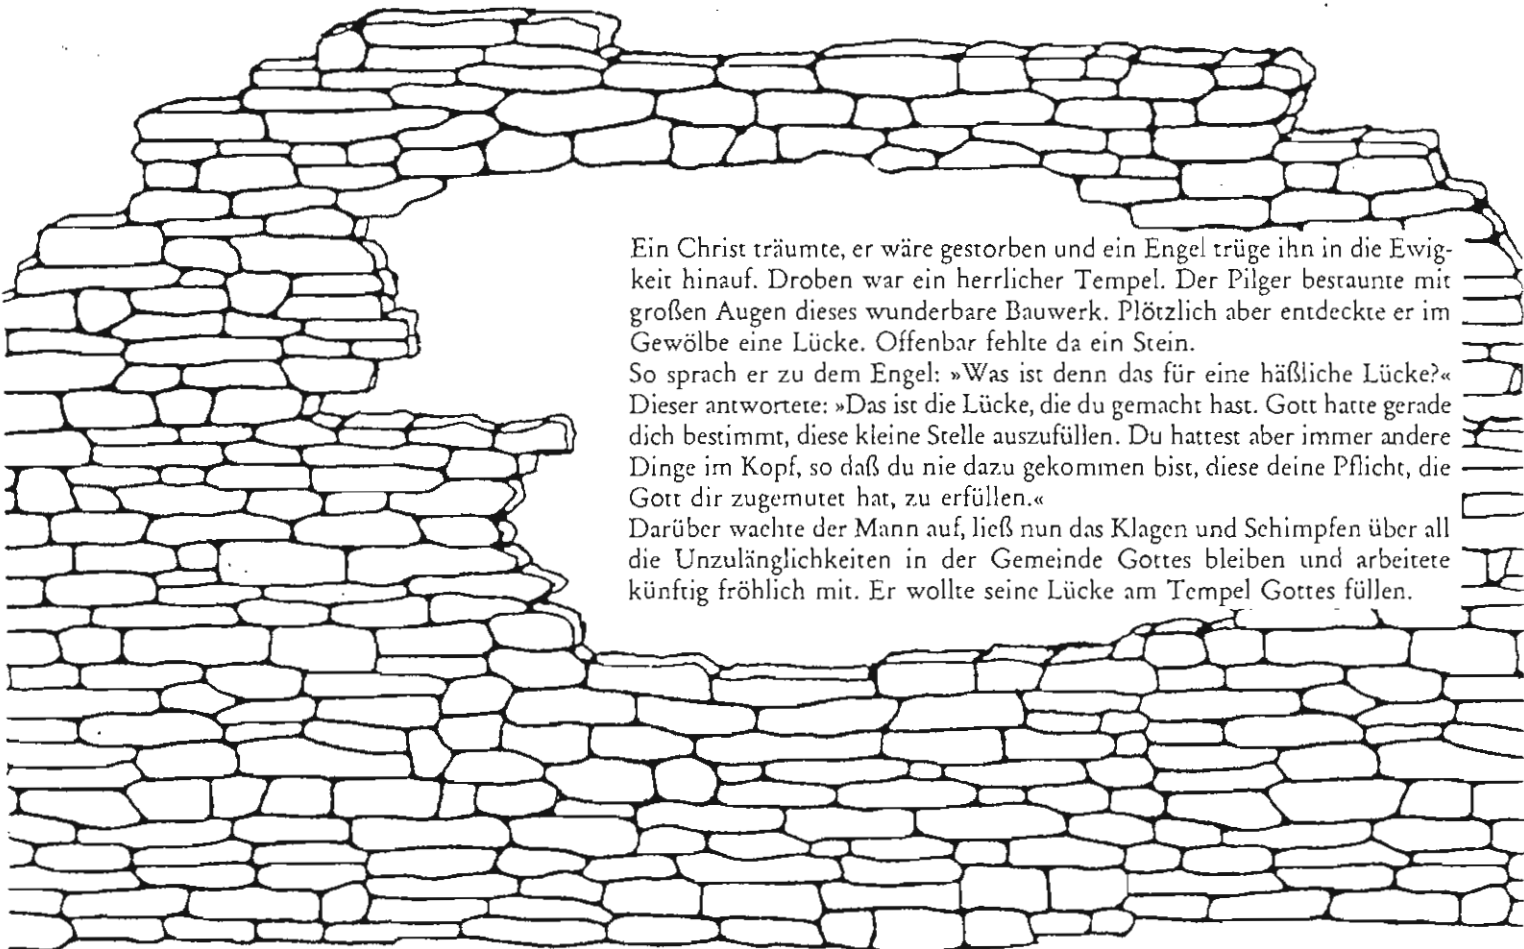 Ein Christ träumte, er wäre gestorben und ein Engel trüge ihn in die Ewig-
keit hinauf. Droben war ein herrlicher Tempel. Der Pilger bestaunte mit
großen Augen dieses wunderbare Bauwerk. Plötzlich aber entdeckte er im
Gewölbe eine Lücke. Offenbar fehlte da ein Stein.
So sprach er zu dem Engel: »Was ist denn das für eine häßliche Lücke?«
Dieser antwortete: »Das ist die Lücke, die du gemacht hast. Gott hatte gerade
dich bestimmt, diese kleine Stelle auszufüllen. Du hattest aber immer andere
Dinge im Kopf, so daß du nie dazu gekommen bist, diese deine Pflicht, die
Gott dir zugemutet hat, zu erfüllen.«
Darüber wachte der Mann auf, ließ nun das Klagen und Schimpfen über all
die Unzulänglichkeiten in der Gemeinde Gottes bleiben und arbeitete
künftig fröhlich mit. Er wollte seine Lücke am Tempel Gottes füllen.